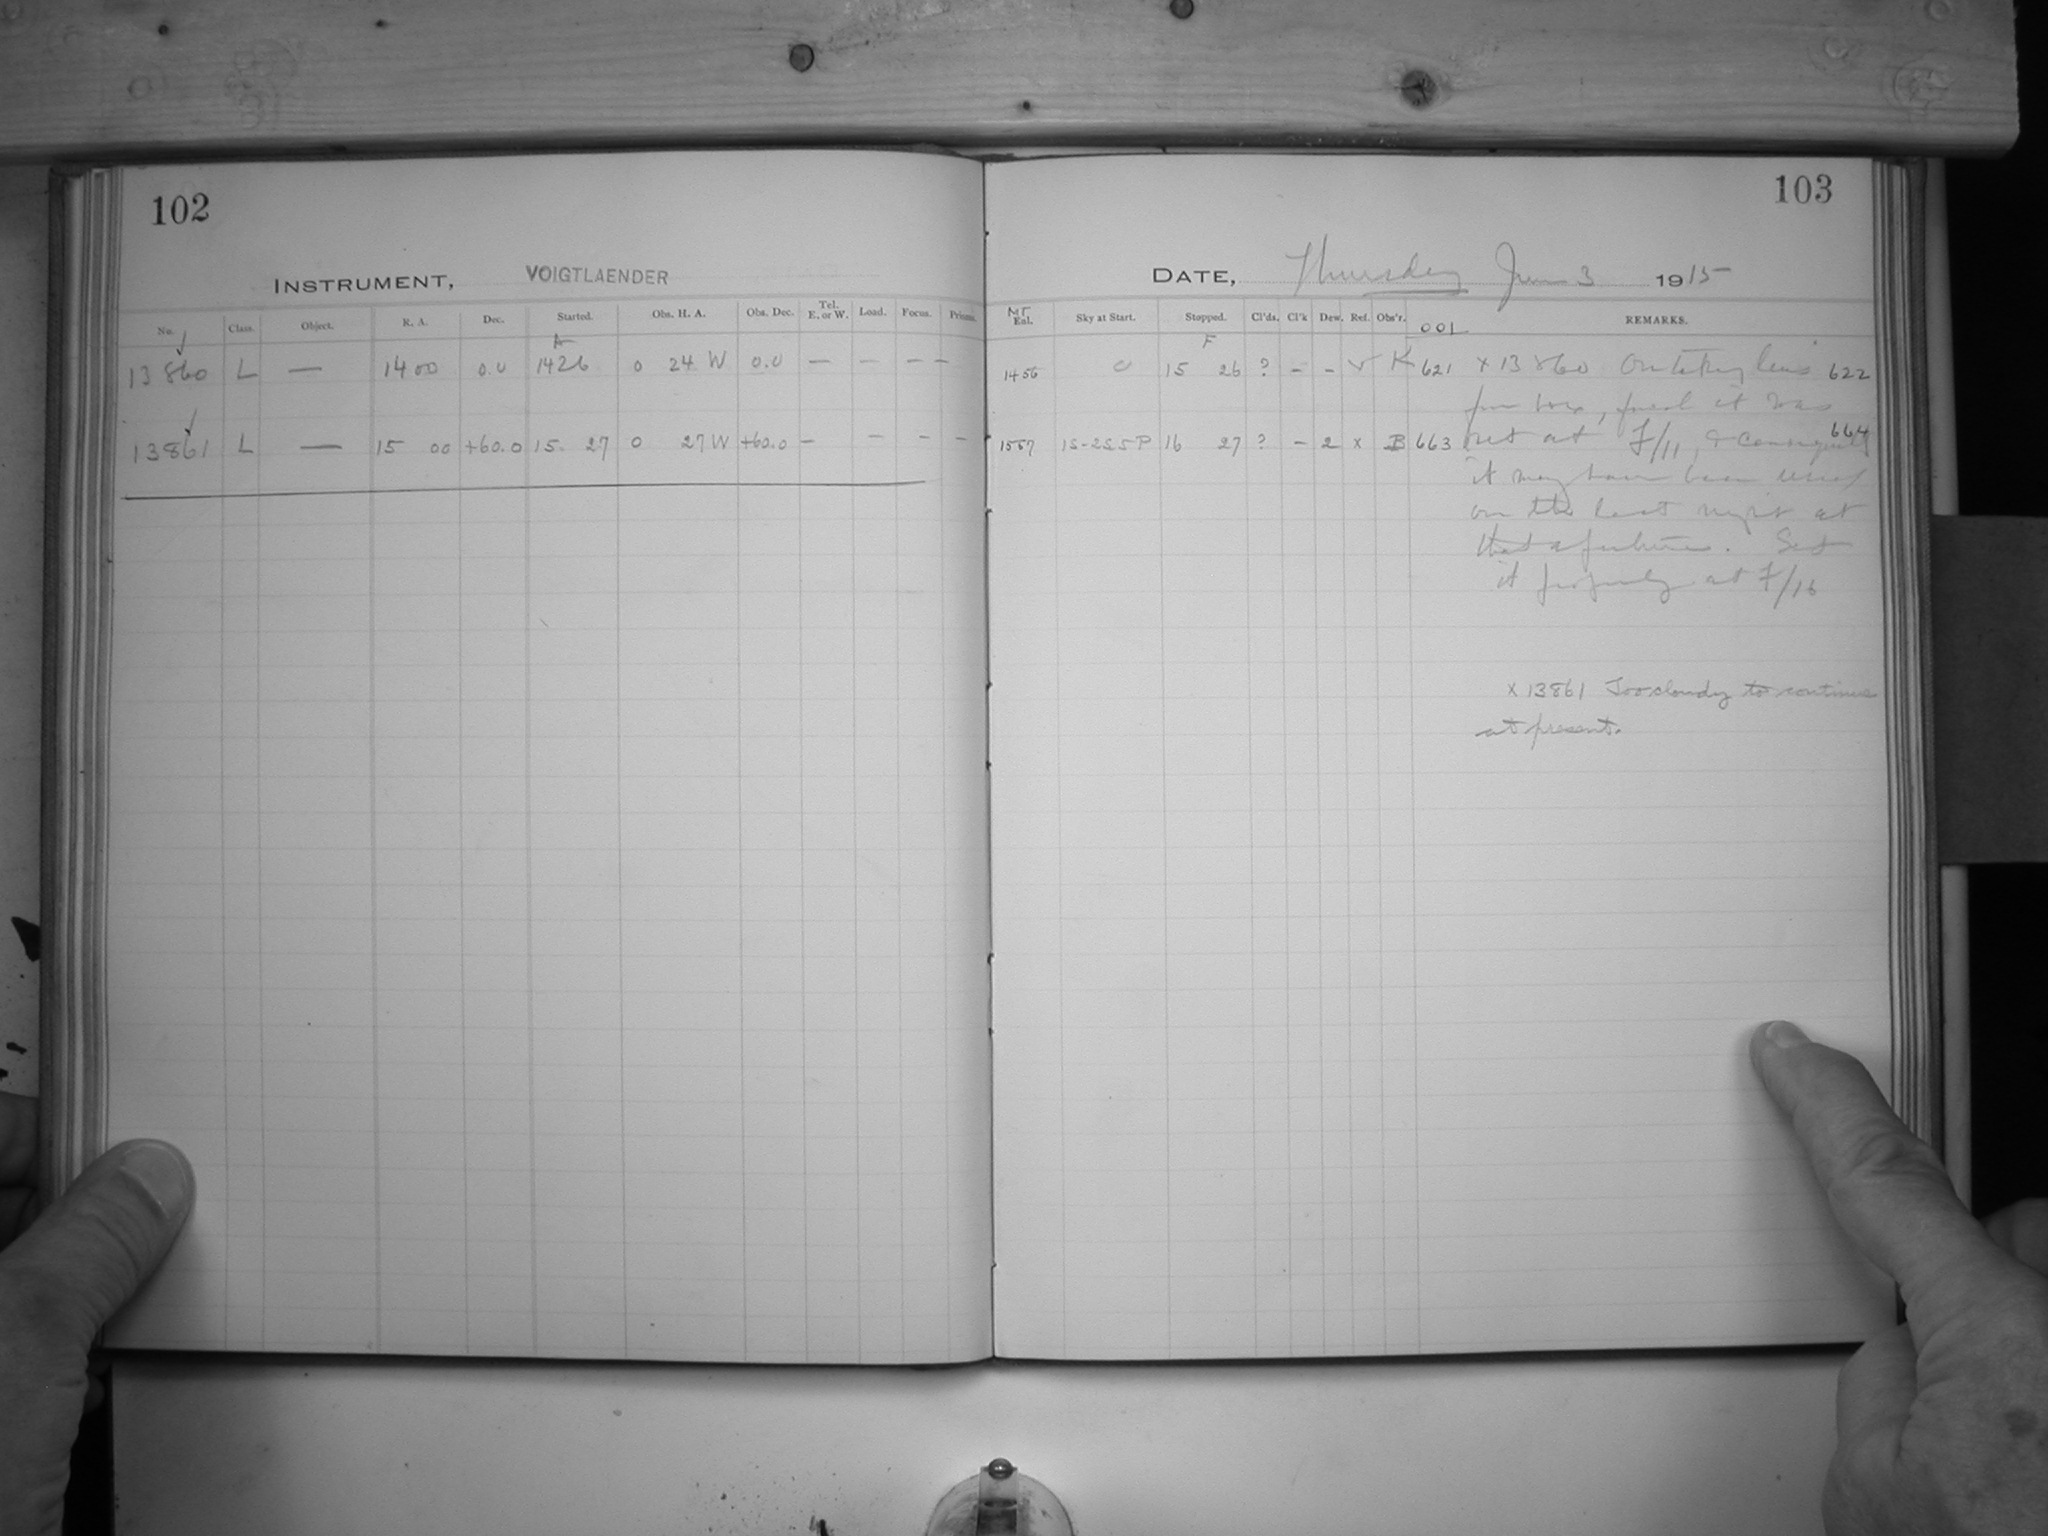 102
INSTRUMENT, VOIGTLAENDER
No. Class. Object. R. A. Dec. Started. Obs. H. A. Obs. Dec. Tel. E. or W. Load. Focus. Prisms.
A
13860 L — 14 00 0.0 1426 0 24 W 0.0 — — — —
13861 L — 15 00 +60.0 15. 27 0 27 W +60.0 — — — —
103
DATE, Thursday June 3 1915
MT Enl. Sky at Start. Stopped. Cl'ds. Cl'k Dew. Ref. Obs'r. 001 REMARKS.
F
1456 0 15 26 ? - - v K 621 x 13860 On taking lens 622
from box, found it was
1557 15-25 5 P 16 27 ? - 2 x B 663 set at F/11, & 664
it may have been used
on the last night at
that aperture. Set
it properly at F/16
x 13861 Too cloudy to continue
at present.